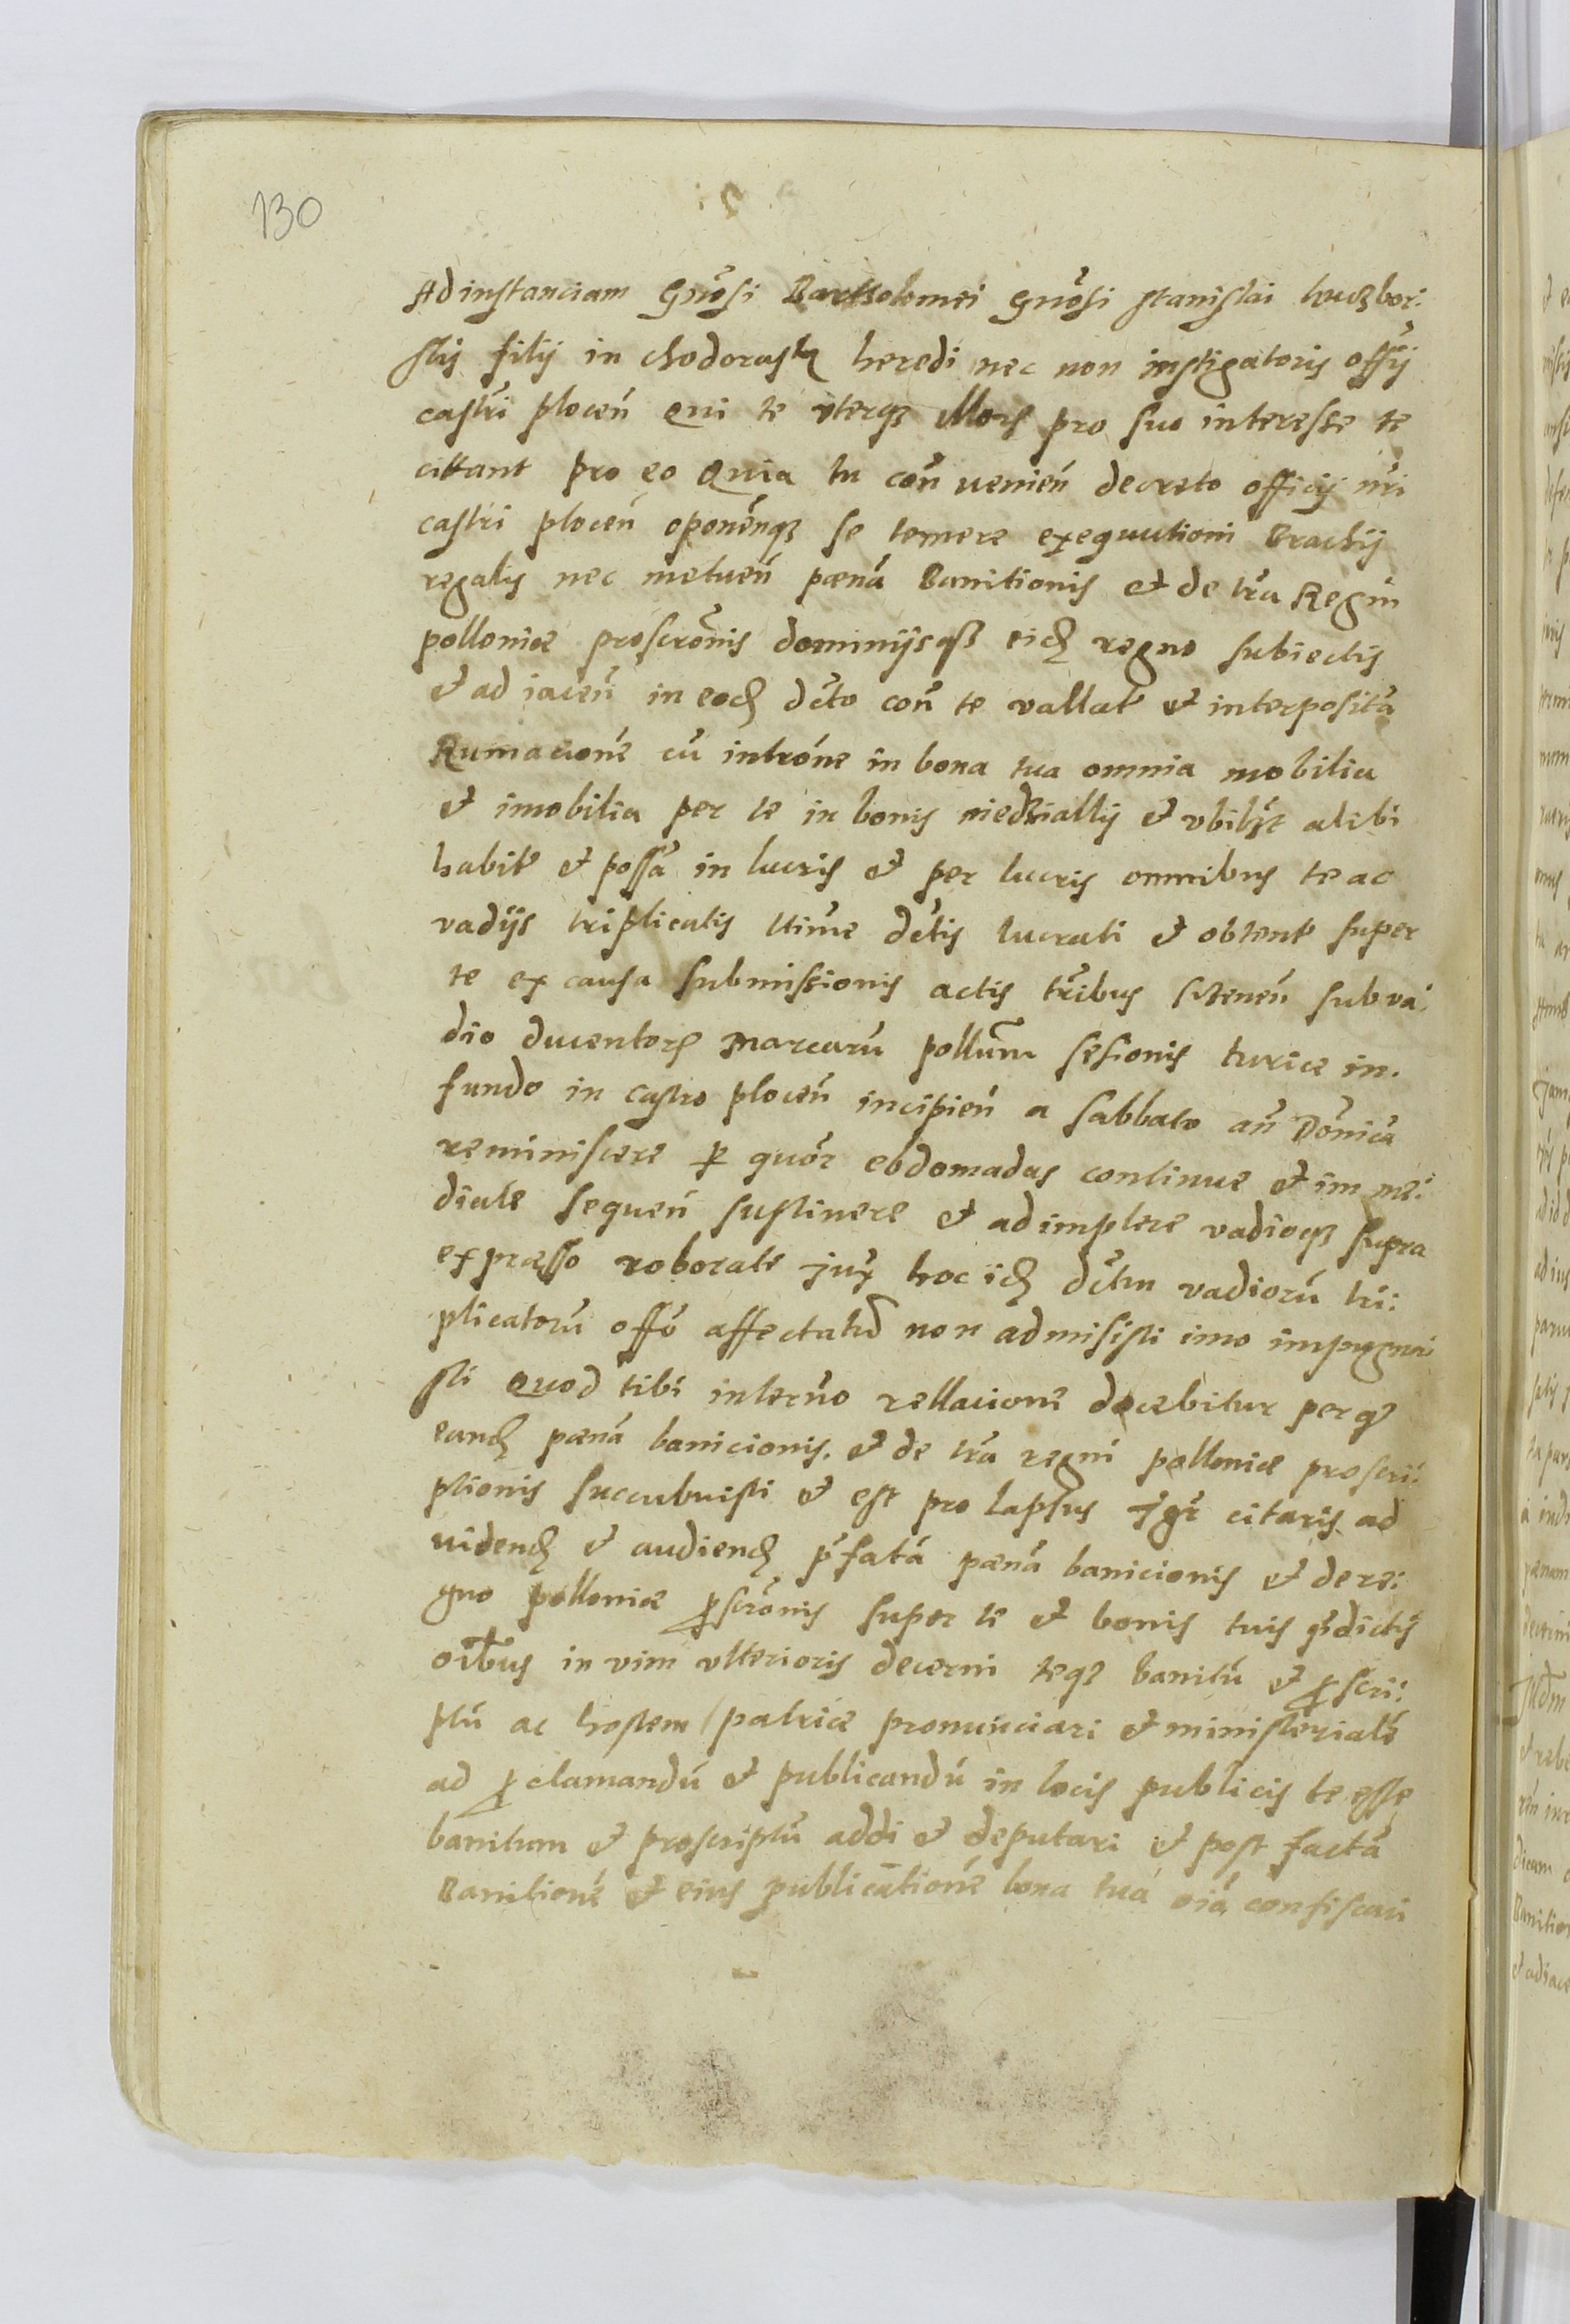 130
Ad instanciam Gnōsi Bartholomei Gnōsi stanislai luczbor:
skij filij in chodorasth heredi nec non instigatoris offij
castri plocen̄ Qui te vterqȝ illorꝝ pro suo interesse te
cittant pro eo Quia tu con̄ uenien̄ decreto officij nr̄i
castri plocen̄ oponēnqȝ se temere exequutioni Brachij
regalis nec metuen̄ pænā Banitionis et de tr̄a Regni
polloniæ proscrōnis dominijsqȝ eidꝫ regno subiectis
et ad iacen̄ in eodꝫ dc̄to con̄ te vallat̄ et interpositā
Rumacionē cū intrōne in bona tua omnia mobilia
et imobilia per te in bonis niedzialky et vbilꝫt alibi
habit̄ et possā in lucris et per lucris omnibus te ac
vadijs triplicatis ltime dc̄tis lucrati et obtent̄ super
te ex causa submissionis actis tr̄ibus sctenen̄ sub va:
dio ducentorꝝ Marcarū pollum̄ sesionis turiæ in.
fundo in castro plocen̄ incipien̄ a sabbato an̄ Dōnicā
reminiscere ꝑ quor̄ ebdomadas continue et im me:
diate sequen̄ sustinere et adimplere vadioqȝ supra
expræsso roborate juxͣ hoc idꝫ dc̄tm vadiorū tri:
plicatorū offō affectatū non admisisti imo impugna:
sti Quod tibi intermō rellacione docebitur perqȝ
eandꝫ pænā banicionis. et de tr̄a regni polloniæ proscri:
ptionis succubuisti et est pro lapsus Jgr̄ citaris ad
uidendꝫ et audiendꝫ p̄fatā pænā banicionis et de re:
gno polloniæ ꝓscrōnis super te et bonis tuis p̄dictis
oībus in vim vlterioris decerni teqȝ banitū et ꝓscri:
ptū ac hostem patriæ pronunciari et ministerialē
ad ꝓclamandū et publicandū in locis publicis te esse
banitum et proscriptū addi et deputari et post factā
Banitionē et eius publicationē bona tua oīa confiscari